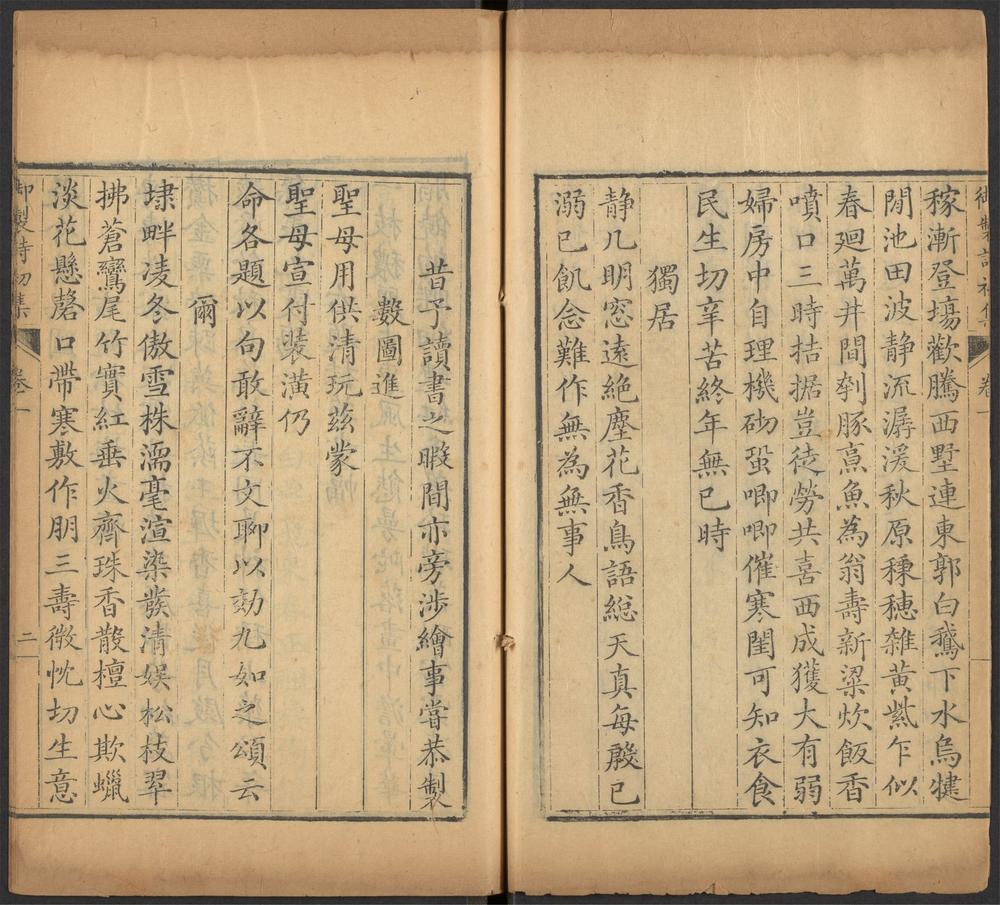 御製詩初集 卷一
稼漸登場歡騰西墅連東郭白鵞下水烏犍
閒池田波静流潺湲秋原穜穗雜黄紫乍似
春廻萬井間刲豚烹魚為翁壽新粱炊飯香
噴口三時拮据豈徒勞共喜西成獲大有弱
婦房中自理機砌蛩唧唧催寒閨可知衣食
民生切辛苦終年無已時
獨居
静几明窓遠絶塵花香鳥語總天真每殷已
溺已飢念難作無為無事人
昔予讀書之暇間亦旁涉繪事嘗恭製
數圖進
聖母用供清玩兹蒙
聖母宣付裝潢仍
命各題以句敢辭不文聊以効九如之頌云
爾
埭畔凌冬傲雪株濡毫渲染發清娱松枝翠
拂蒼鸞尾竹實紅垂火齊珠香散檀心欺蠟
淡花懸磬口帶寒敷作朋三壽微忱切生意
御製詩初集 卷一 二